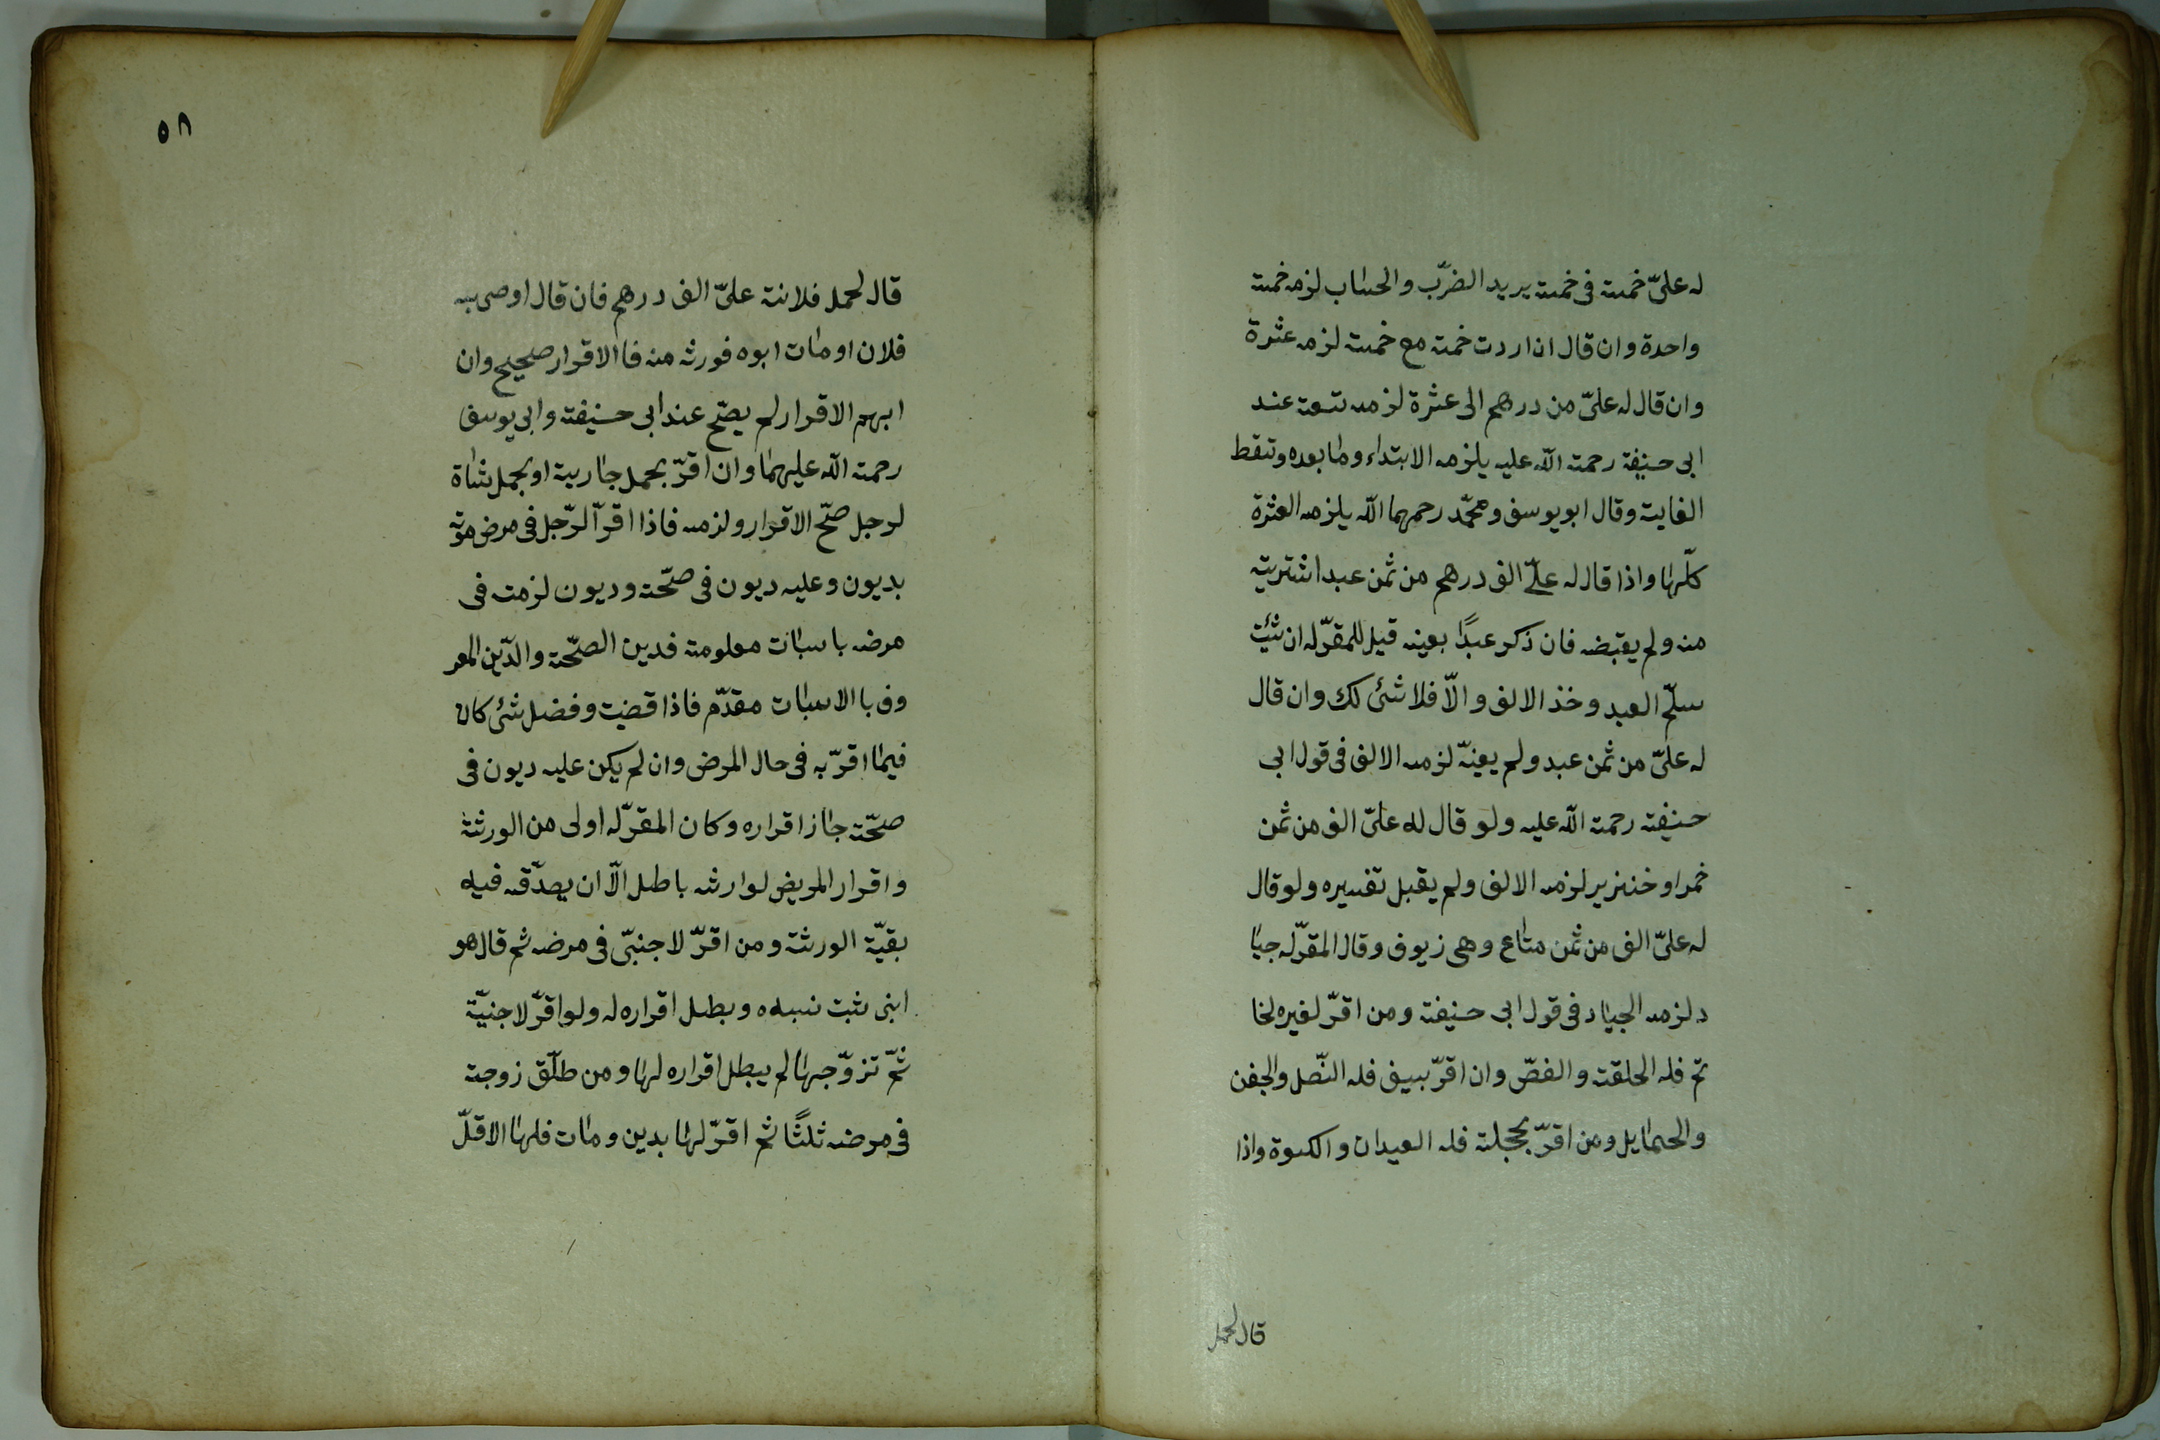 له علىّ خمسة فى خمسة يريد الضرّب والحساب لزمه خمسة
واحدة وان قال ان اردت خمسة مع خمسة لزمه عشرة
وان قال له علىّ من درهم الى عشرة لزمه تسعة عند
ابى حنيفة رحمة الله عليه يلزمه الابتداء وما بعده وتسقط
الغاية وقال ابو يوسف ومحمّد رحمهما الله يلزمه العشرة
كلّها واذا قال له علىّ الف درهم من ثمن عبد اشتريته
منه ولم يقبضه فان ذكر عبدًا بعينه قيل للمقرّ له ان شئت
سلّم العبد وخذ الالف والّا فلا شئ لك وان قال
له علىّ من ثمن عبد ولم يعينّه لزمه الالف فى قول ابى
حنيفة رحمة الله عليه ولو قال له علىّ الف من ثمن
خمر او خنزير لزمه الالف ولم يقبل تفسيره ولو قال
له علىّ الف من ثمن متاع وهى زيوف وقال المقرّ له جيا
د لزمه الجياد فى قول ابى حنيفة ومن اقرّ لغيره لخا
تم فله الحلقة والفصّ وان اقرّ بسيف فله النّصل والجفن
والحمايل ومن اقرّ بحجلة فله العيدان والكسوة واذا
قال لحمل
٥٨
قال لحمل فلانة علىّ الف درهم فان قال اوصى به
فلان او مات ابوه فورثه منه فاالاقرار صحيح وان
ابهم الاقرار لم يصّح عند ابى حنيفة وابى يوسف
رحمة الله عليهما وان اقرّ بحمل جارية او بحمل شاة
لرجل صّح الاقرار ولزمه فاذا اقرّ الرّجل فى مرض موته
بديون وعليه ديون فى صحّته وديون لزمت فى
مرضه باسبات معلومة فدين الصّحة والدّين المعر
وف باالاسبات مقدّم فاذا قضيت وفضل شئ كان
فيما اقرّ به فى حال المرض وان لم يكن عليه ديون فى
صحّته جاز اقراره وكان المقرّ له اولى من الورثة
واقرار المريض لوارثه باطل الّا ان يصدّقه فيه
بقيّة الورثة ومن اقرّ لاجنبىّ فى مرضه ثم قال هو
ابنى ثبت نسبه وبطل اقراره له ولو اقرّ لاجنبيّة
ثمّ تزوّجها لم يبطل اقراره لها ومن طلّق زوجته
فى مرضه ثلثًا ثم اقرّ لها بدين ومات فلها الاقلّ